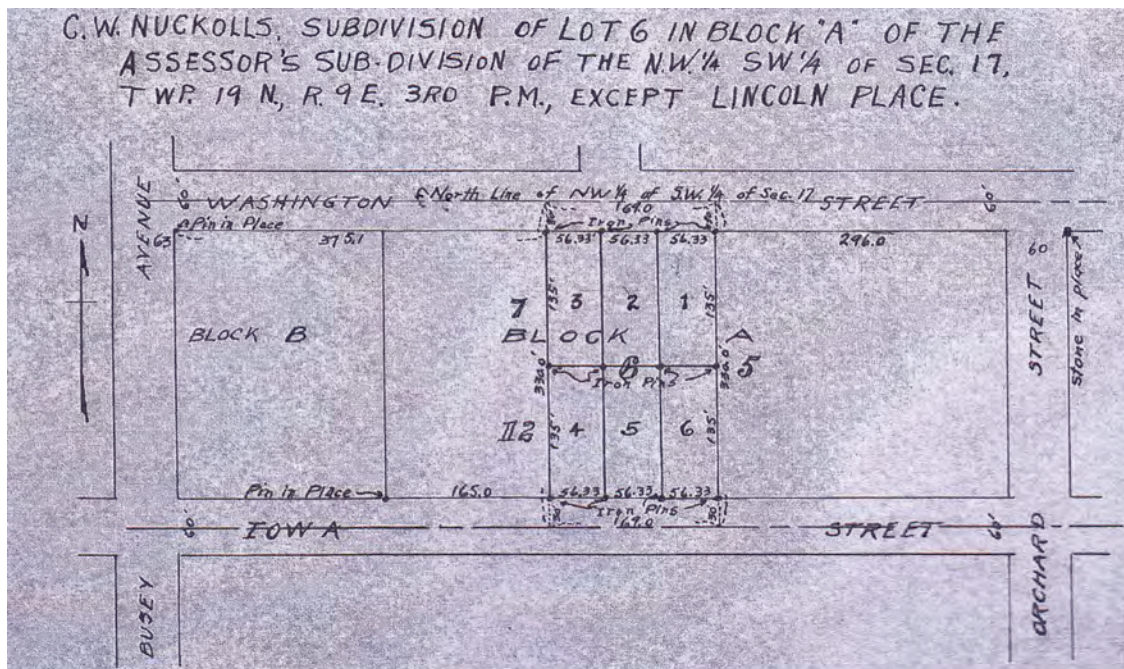 C.W. NUCKOLLS, SUBDIVISION OF LOT 6 IN BLOCK "A" OF THE
ASSESSOR'S SUB-DIVISION OF THE N.W.¼ SW¼ OF SEC. 17,
TWP. 19 N., R. 9 E. 3RD P.M., EXCEPT LINCOLN PLACE.
AVENUE
60'
WASHINGTON
North Line of NW ¼ of S.W. ¼ of Sec. 17
STREET
60'
169.0
N
Pin in Place
30'
Iron Pins
30'
63
375.1
56.33
56.33
56.33
296.0
60
135'
3
2
1
135'
7
BLOCK B
BLOCK
A
STREET
stone in place
330.0'
6
Iron Pins
330.0'
5
135'
4
5
6
135'
12
Pin in Place
165.0
56.33
56.33
56.33
30'
Iron Pins
30'
169.0
60'
IOWA
STREET
60'
BUSEY
ORCHARD